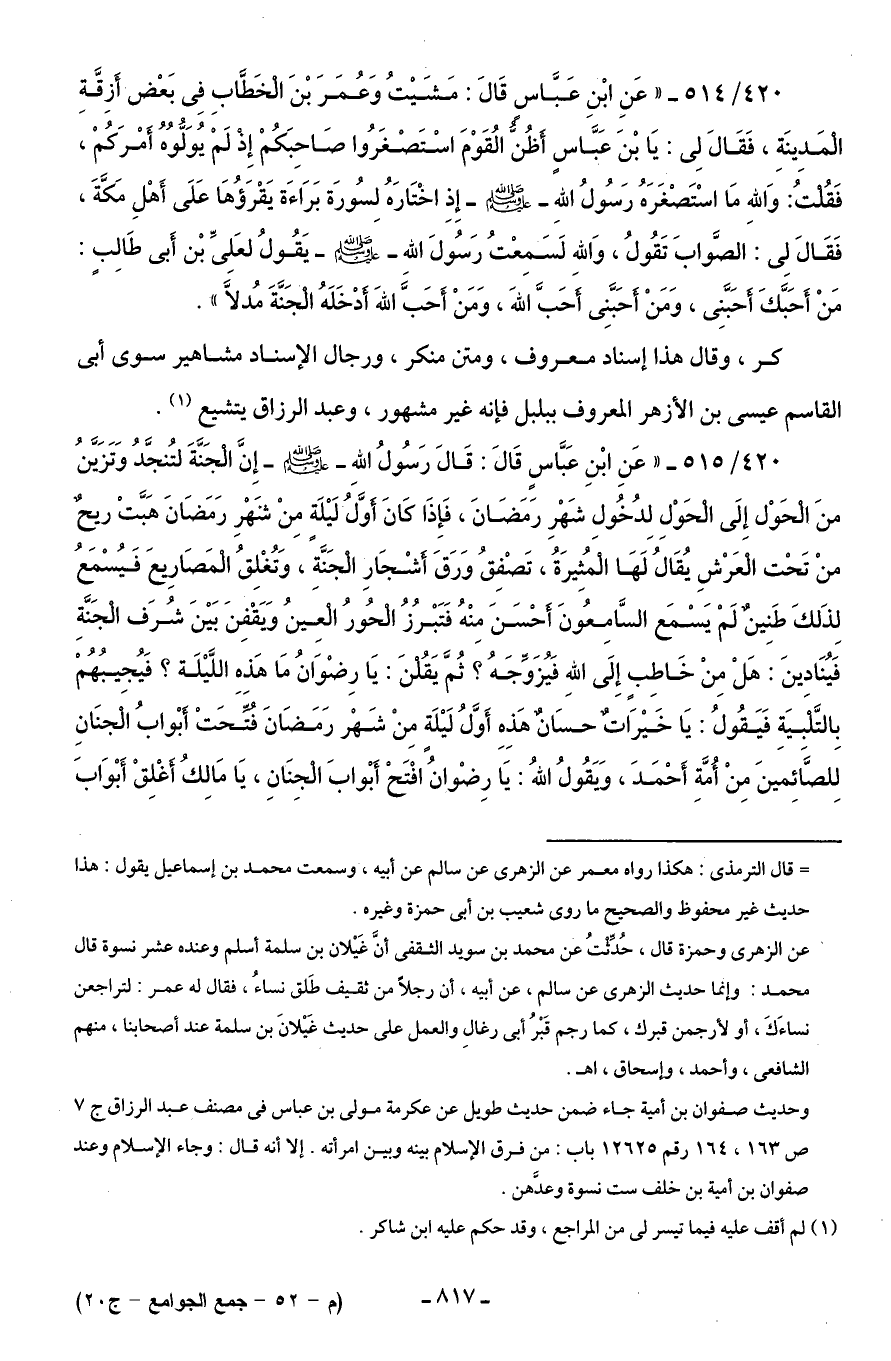 ٤٢٠/ ٥١٤ ـ « عَنِ ابْنِ عَبَّاسٍ قَالَ : مَشَيْتُ وَعُمَرَ بْنَ الْخَطَّابِ فِى بَعْضِ أَزِقَّةِ
الْمَدِينَةِ ، فَقَالَ لِى : يَا بْنَ عَبَّاسٍ أَظُنُّ الْقَوْمَ اسْتَصْغَرُوا صَاحِبَكُمْ إِذْ لَمْ يُوَلُّوهُ أَمْرَكُمْ ،
فَقُلْتُ: وَاللهِ مَا اسْتَصْغَرَهُ رَسُولُ اللهِ ـ ﷺ ـ إِذِ اخْتَارَهُ لِسُورَةِ بَرَاءَةَ يَقْرَؤُهَا عَلَى أَهْلِ مَكَّةَ ،
فَقَالَ لِى : الصَّوَابَ تَقُولُ ، وَاللهِ لَسَمِعْتُ رَسُولَ اللهِ ـ ﷺ ـ يَقُولُ لِعَلِىِّ بْنِ أَبِى طَالِبٍ :
مَنْ أَحَبَّكَ أَحَبَّنِى ، وَمَنْ أَحَبَّنِى أَحَبَّ اللهَ ، وَمَنْ أَحَبَّ اللهَ أَدْخَلَهُ الْجَنَّةَ مُدِلاًّ » .
كر ، وقال هذا إسناد معروف ، ومتن منكر ، ورجال الإسناد مشاهير سوى أبى
القاسم عيسى بن الأزهر المعروف ببلبل فإنه غير مشهور ، وعبد الرزاق يتشيع (١) .
٤٢٠/ ٥١٥ ـ « عَنِ ابْنِ عَبَّاسٍ قَالَ : قَالَ رَسُولُ اللهِ ـ ﷺ ـ إِنَّ الْجَنَّةَ لَتُنَجَّدُ وَتَزَيَّنُ
مِنَ الْحَوْلِ إِلَى الْحَوْلِ لِدُخُولِ شَهْرِ رَمَضَانَ ، فَإِذَا كَانَ أَوَّلُ لَيْلَةٍ مِنْ شَهْرِ رَمَضَانَ هَبَّتْ رِيحٌ
مِنْ تَحْتِ الْعَرْشِ يُقَالُ لَهَا الْمُثِيرَةُ ، تَصْفِقُ وَرَقَ أَشْجَارِ الْجَنَّةِ ، وَتُغْلِقُ الْمَصَارِيعَ فَيُسْمَعُ
لِذَلِكَ طَنِينٌ لَمْ يَسْمَعِ السَّامِعُونَ أَحْسَنَ مِنْهُ فَتَبْرُزُ الْحُورُ الْعِينُ وَيَقِفْنَ بَيْنَ شُرَفِ الْجَنَّةِ
فَيُنَادِينَ : هَلْ مِنْ خَاطِبٍ إِلَى اللهِ فَيُزَوِّجَهُ ؟ ثُمَّ يَقُلْنَ : يَا رِضْوَانُ مَا هَذِهِ اللَّيْلَةِ ؟ فَيُجِيبُهُمْ
بِالتَّلْبِيَةِ فَيَقُولُ : يَا خَيْرَاتٌ حِسَانٌ هَذِهِ أَوَّلُ لَيْلَةٍ مِنْ شَهْرِ رَمَضَانَ فُتِّحَتْ أَبْوَابُ الْجِنَانِ
لِلصَّائِمِينَ مِنْ أُمَّةِ أَحْمَدَ ، وَيَقُولُ اللهُ : يَا رِضْوَانُ افْتَحْ أَبْوَابَ الْجِنَانِ ، يَا مَالِكُ أَغْلِقْ أَبْوَابَ
= قال الترمذى : هكذا رواه معمر عن الزهرى عن سالم عن أبيه ، وسمعت محمد بن إسماعيل يقول : هذا
حديث غير محفوظ والصحيح ما روى شعيب بن أبى حمزة وغيره .
عن الزهرى وحمزة قال ، حُدِّثْتُ عن محمد بن سويد الثقفى أنَّ غَيْلان بن سلمة أسلم وعنده عشر نسوة قال
محمد : وإنما حديث الزهرى عن سالم ، عن أبيه ، أن رجلاً من ثقيف طَلق نساءُ ، فقال له عمر : لتراجعن
نساءَكَ ، أو لأرجمن قبرك ، كما رجم قَبْرُ أبى رغال والعمل على حديث غَيْلانَ بن سلمة عند أصحابنا ، منهم
الشافعى ، وأحمد ، وإسحاق ، اهـ .
وحديث صفوان بن أمية جاء ضمن حديث طويل عن عكرمة مولى بن عباس فى مصنف عبد الرزاق ج ٧
ص ١٦٣ ، ١٦٤ رقم ١٢٦٢٥ باب : من فرق الإسلام بينه وبين امرأته . إلا أنه قال : وجاء الإسلام وعند
صفوان بن أمية بن خلف ست نسوة وعدَّهن .
(١) لم أقف عليه فيما تيسر لى من المراجع ، وقد حكم عليه ابن شاكر .
ـ ٨١٧ ـ
(م – ٥٢ – جمع الجوامع – ج ٢٠)